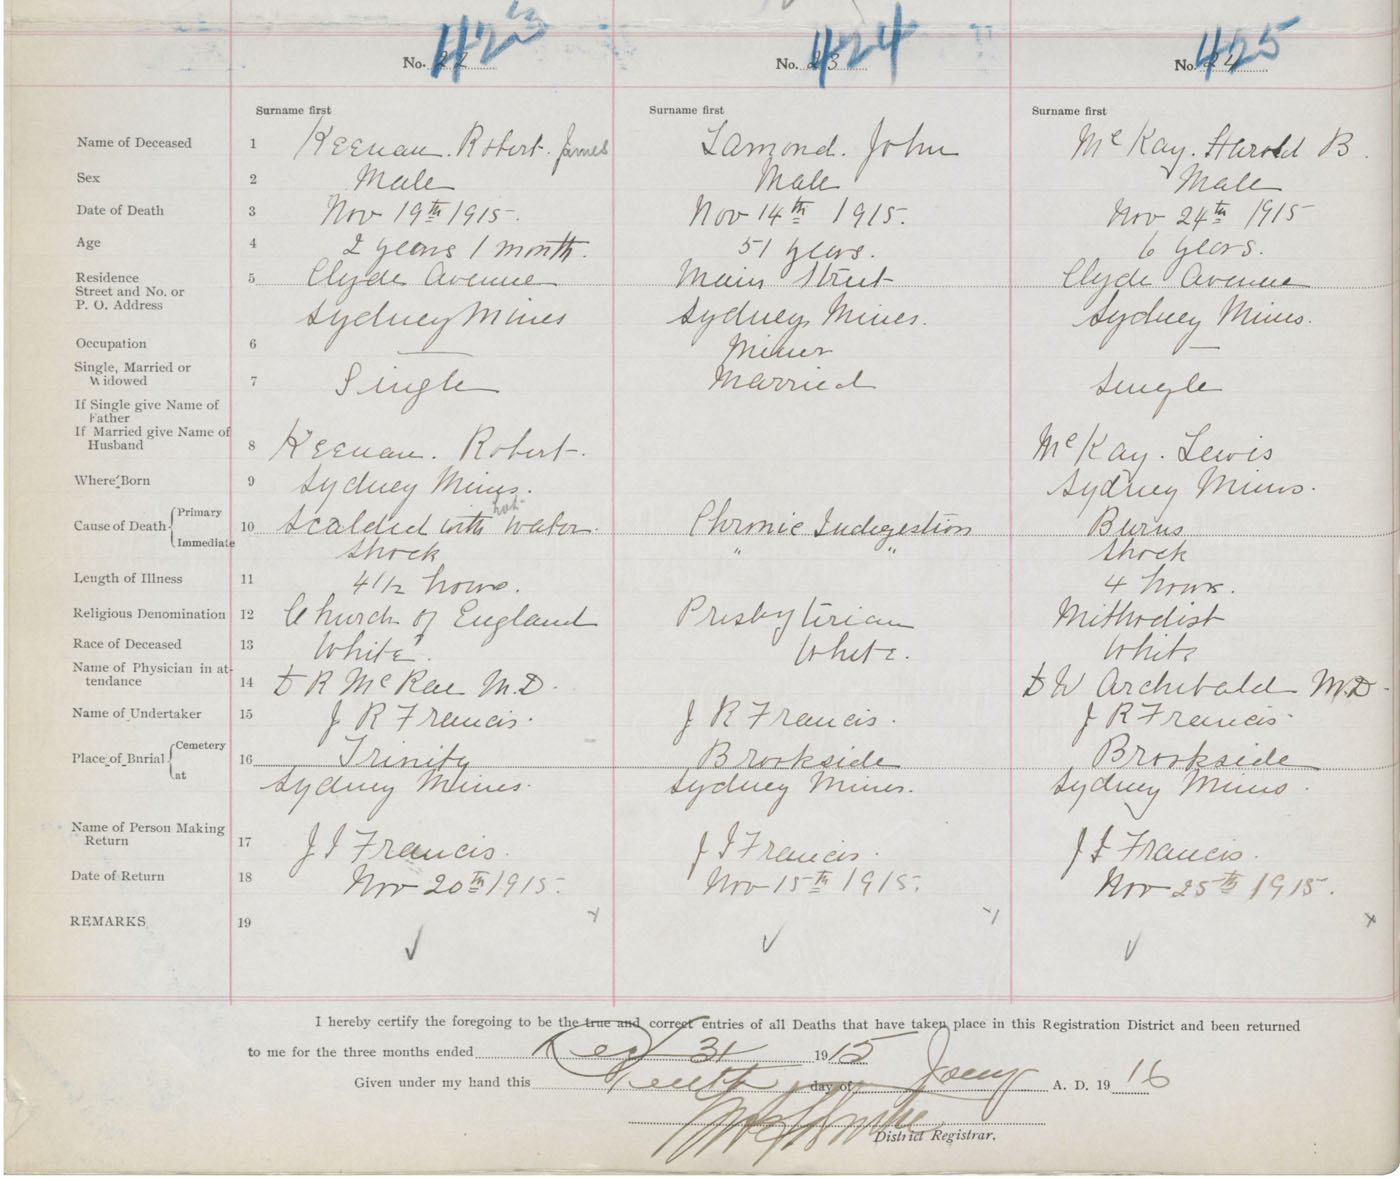 423 424 425
No. 22 No. 23 No. 24
Surname first Surname first Surname first
Name of Deceased 1 Keenan. Robert. James Lamond. John McKay. Harold B.
Sex 2 Male Male Male
Date of Death 3 Nov 19th 1915. Nov 14th 1915. Nov 24th 1915
Age 4 2 years 1 month. 51 years. 6 years.
Residence 5 Clyde Avenue Main Street Clyde Avenue
Street and No. or
P. O. Address Sydney Mines Sydney Mines. Sydney Mines.
Occupation 6 — Miner —
Single, Married or
Widowed 7 Single Married Single
If Single give Name of
Father
If Married give Name of
Husband 8 Keenan. Robert. McKay. Lewis
Where Born 9 Sydney Mines. Sydney Mines.
Cause of Death Primary 10 Scalded with hot water. Chronic Indigestion Burns
Immediate Shock " " Shock
Length of Illness 11 4 1/2 hours. 4 hours.
Religious Denomination 12 Church of England Presbyterian Methodist
Race of Deceased 13 White. White. White
Name of Physician in at-
tendance 14 D R McRae M.D. D W Archibald M.D.
Name of Undertaker 15 J R Francis. J R Francis. J R Francis.
Place of Burial Cemetery 16 Trinity Brookside Brookside
at Sydney Mines. Sydney Mines. Sydney Mines.
Name of Person Making
Return 17 J I Francis. J I Francis. J I Francis.
Date of Return 18 Nov 20th 1915. Nov 15th 1915. Nov 25th 1915.
REMARKS 19
I hereby certify the foregoing to be the true and correct entries of all Deaths that have taken place in this Registration District and been returned
to me for the three months ended Dec 31 1915
Given under my hand this Tenth day of Jany A. D. 1916
District Registrar.